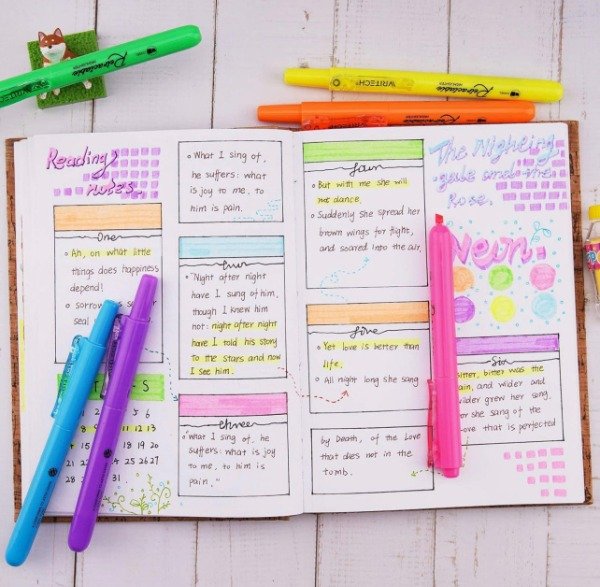 Retractable
HIGHLIGHTER
WRITECH
Retractable
HIGHLIGHTER
Retractable
Reading
notes.
One
Ah, on what little
things does happiness
depend!
sorrow
seal
T - S
8 9 10 11 12 13
14 15 16 17 18 19 20
21 22 23 24 25 26 27
28 31
What I sing of,
he suffers: what is
joy to me, to
him is pain.
"Night after night
have I sung of him,
though I knew him
not: night after night
have I told his story
to the stars and now
I see him.
three
"What I sing of, he
suffers: what is joy
to me, to him is
pain."
But with me she will
not dance,
Suddenly she spread her
brown wings for flight,
and soared into the air.
five
Yet love is better than
life,
All night long she sang
by Death, of the Love
that dies not in the
tomb.
The Nightin
gale and the
Rose.
Neon
Six
bitter, bitter was the
pain, and wilder and
wilder grew her song,
for she sang of the
Love that is perfected